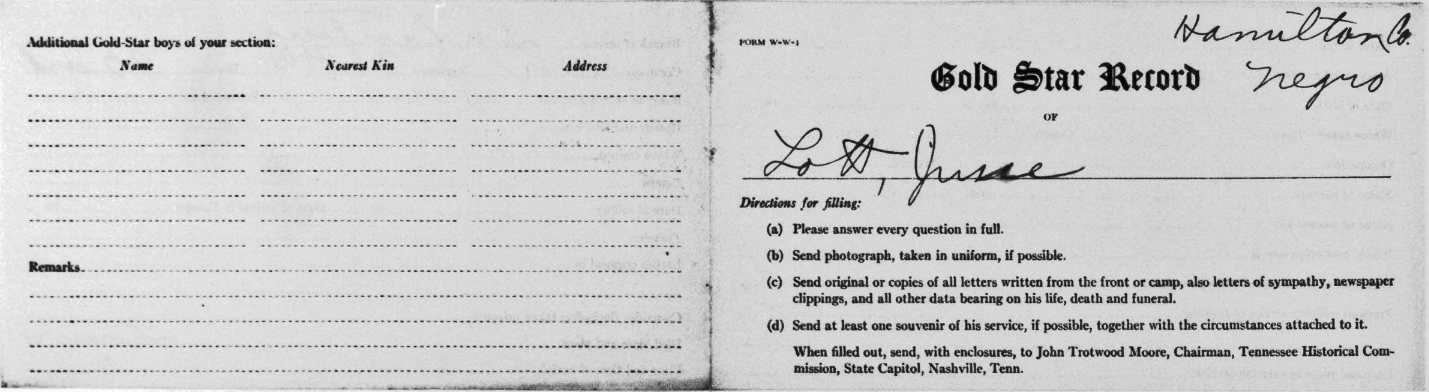 Additional Gold-Star boys of your section:
Name Nearest Kin Address
Remarks
FORM W-W-1
Hamilton Co.
Gold Star Record
Negro
OF
Lott, Jesse
Directions for filling:
(a) Please answer every question in full.
(b) Send photograph, taken in uniform, if possible.
(c) Send original or copies of all letters written from the front or camp, also letters of sympathy, newspaper
clippings, and all other data bearing on his life, death and funeral.
(d) Send at least one souvenir of his service, if possible, together with the circumstances attached to it.
When filled out, send, with enclosures, to John Trotwood Moore, Chairman, Tennessee Historical Com-
mission, State Capitol, Nashville, Tenn.